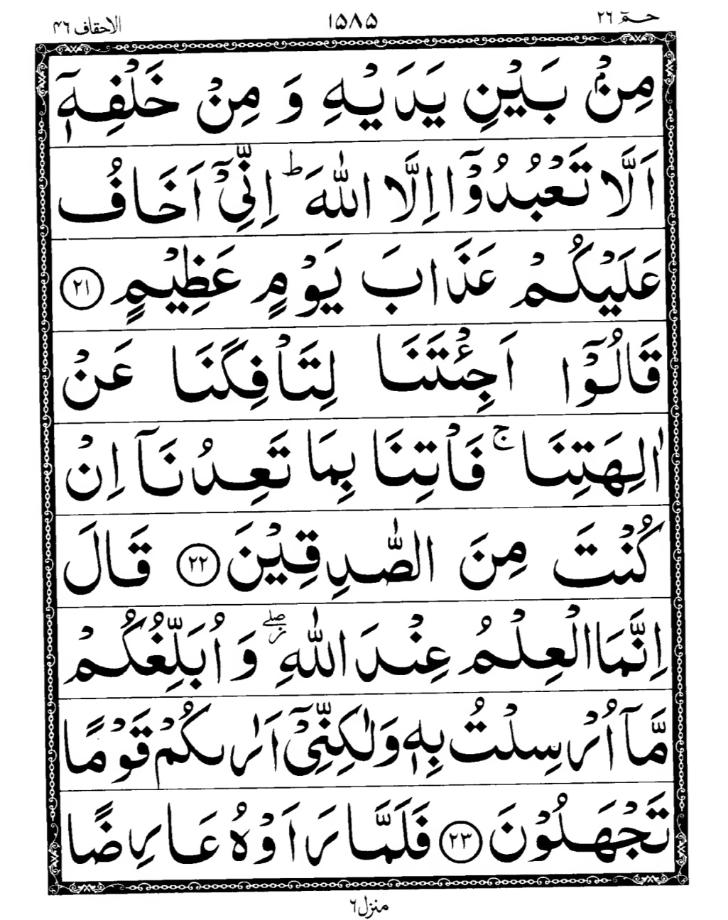 حٰمٓ ٢٦ ١٥٨٥ الاحقاف ٤٦
مِنْۢ بَيْنِ يَدَيْهِ وَ مِنْ خَلْفِهٖۤ
اَلَّا تَعْبُدُوْۤا اِلَّا اللّٰهَ ؕ اِنِّيْۤ اَخَافُ
عَلَيْكُمْ عَذَابَ يَوْمٍ عَظِيْمٍ ﴿٢١﴾
قَالُوْۤا اَجِئْتَنَا لِتَاْفِكَنَا عَنْ
اٰلِهَتِنَا ۚ فَاْتِنَا بِمَا تَعِدُنَاۤ اِنْ
كُنْتَ مِنَ الصّٰدِقِيْنَ ﴿٢٢﴾ قَالَ
اِنَّمَا الْعِلْمُ عِنْدَ اللّٰهِ ۖ ز وَ اُبَلِّغُكُمْ
مَّاۤ اُرْسِلْتُ بِهٖ وَلٰكِنِّيْۤ اَرٰىكُمْ قَوْمًا
تَجْهَلُوْنَ ﴿٢٣﴾ فَلَمَّا رَاَوْهُ عَارِضًا
منزل ٦